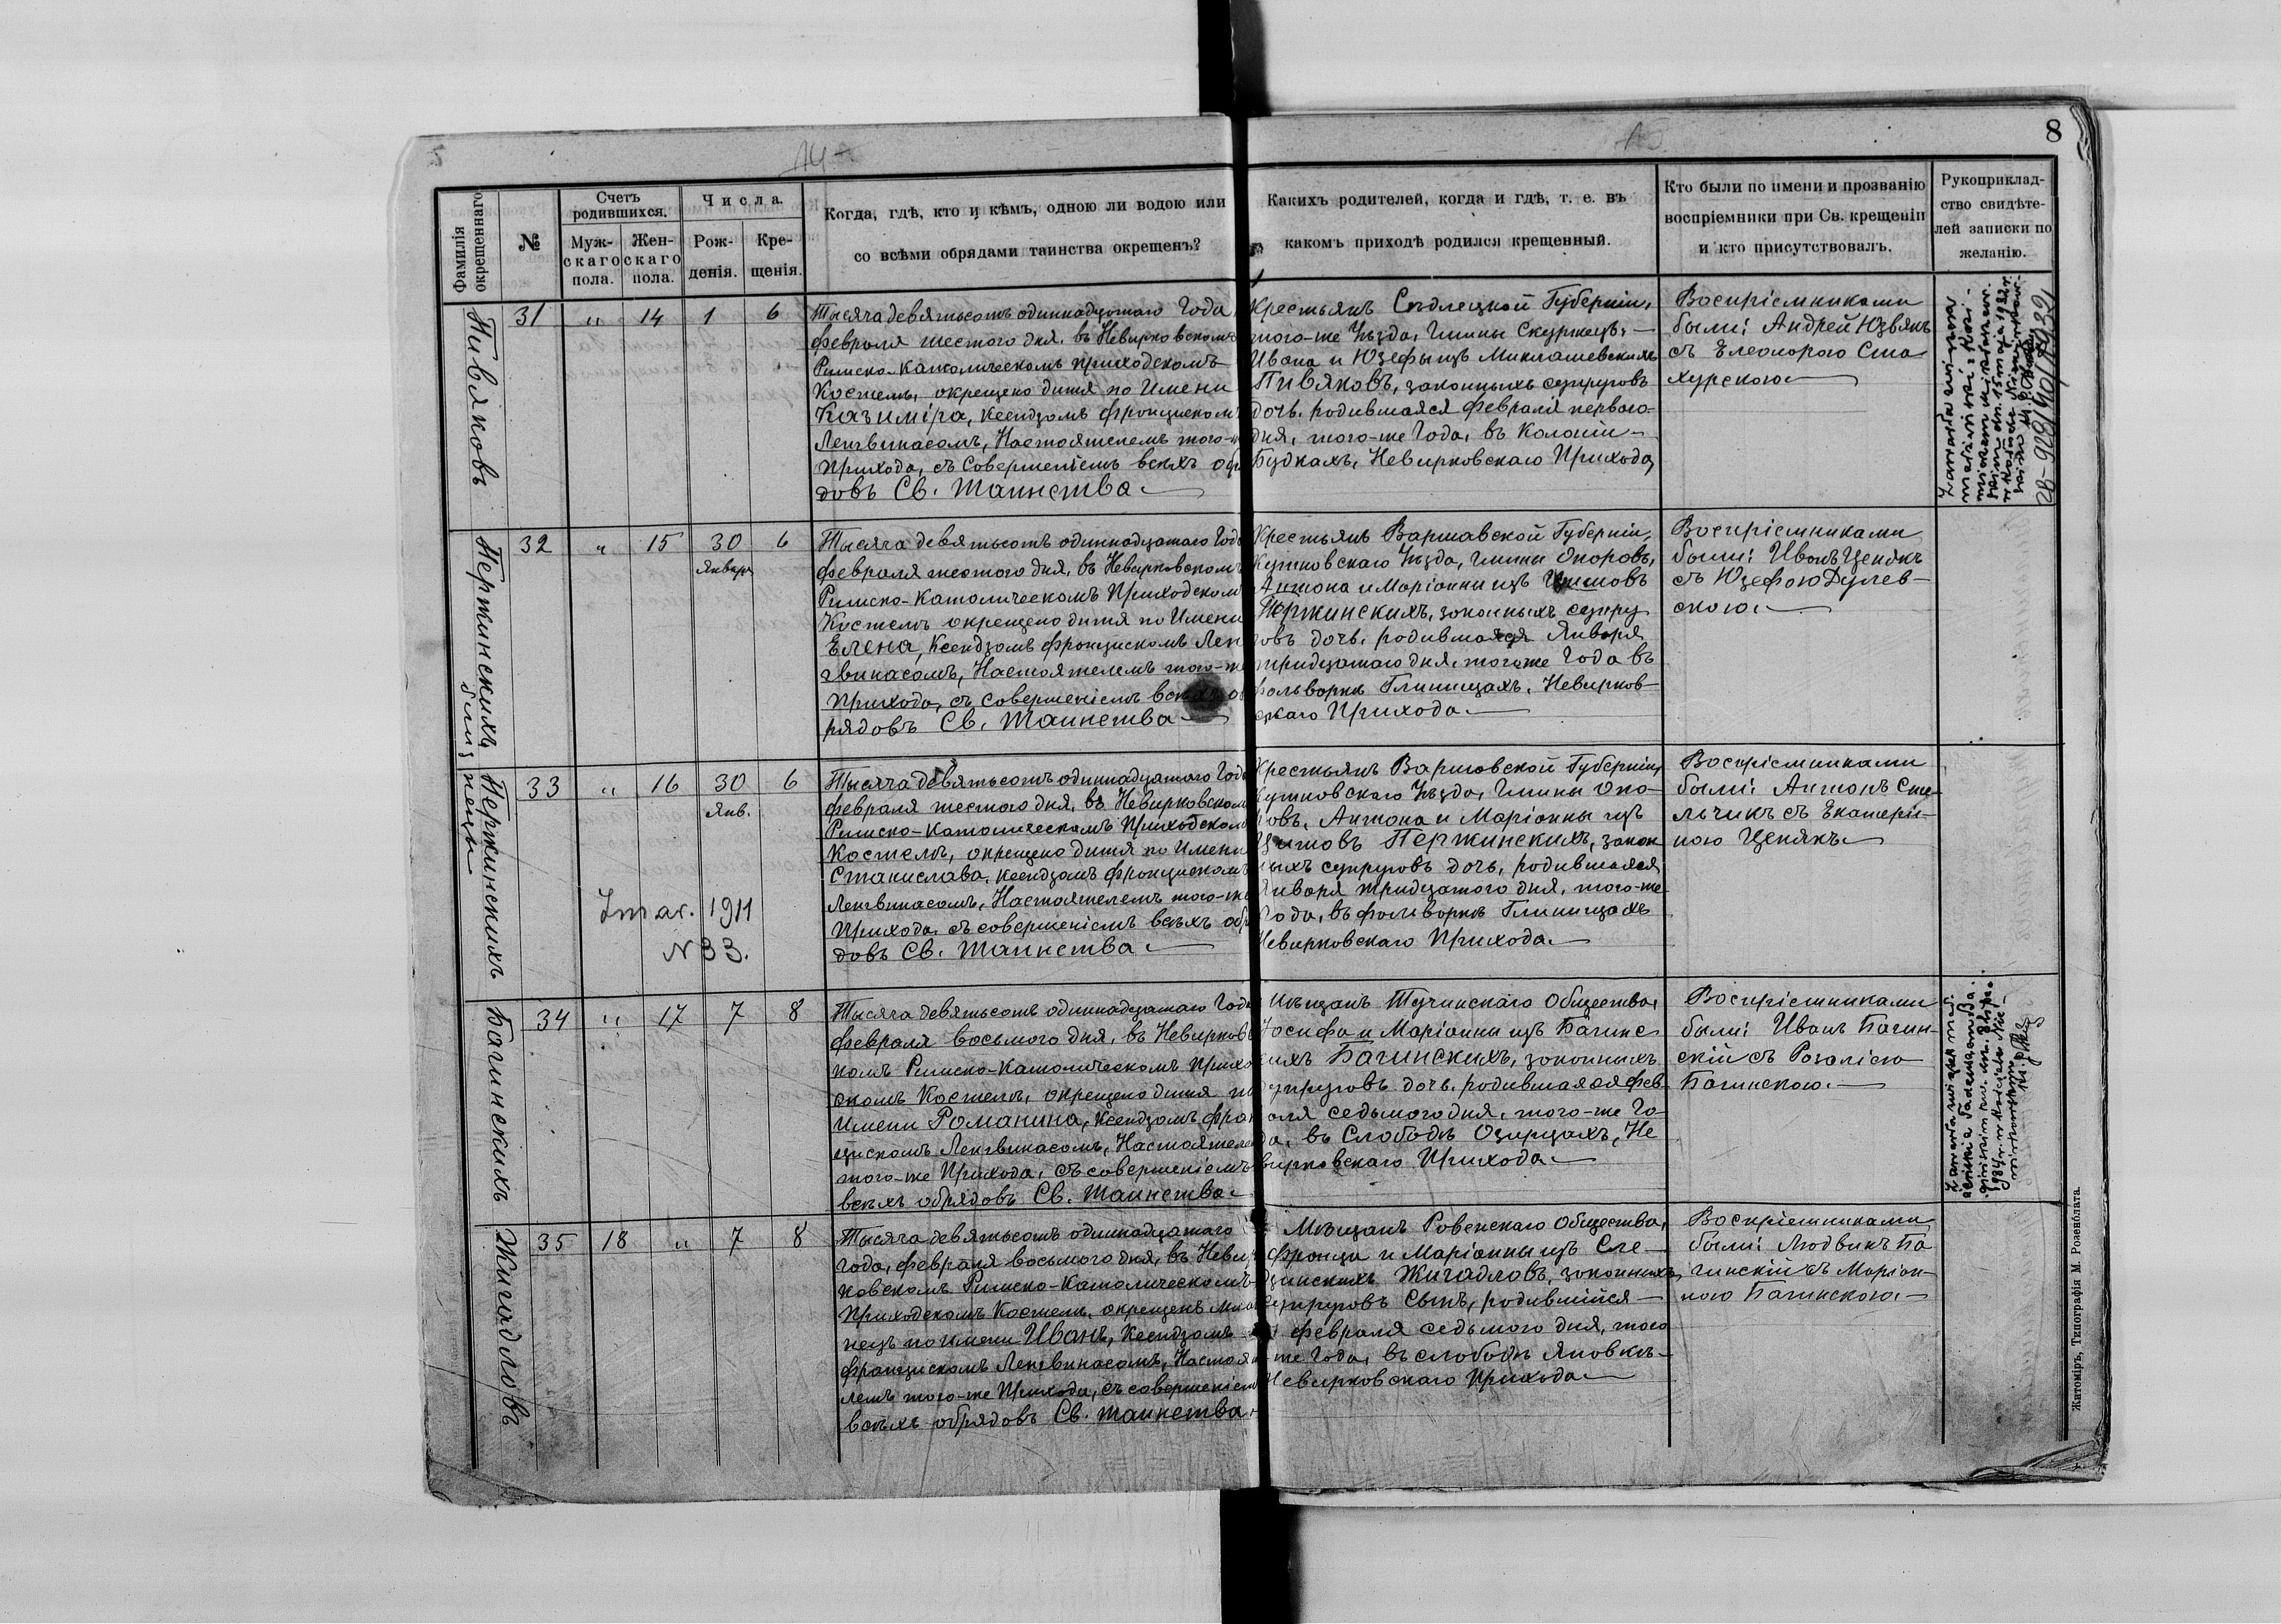 8
Фамилія окрещеннаго.
№
Счетъ родившихся.
Мужскаго пола.
Женскаго пола.
Числа.
Рожденія.
Крещенія.
Когда, гдѣ, кто и кѣмъ, одною ли водою или
со всѣми обрядами таинства окрещенъ?
Какихъ родителей, когда и гдѣ, т. е. въ
какомъ приходѣ родился крещенный.
Кто были по имени и прозванію
воспріемники при Св. крещеніи
и кто присутствовалъ.
Рукоприклад-
ство свидѣте-
лей записки по
желанію.
Пивяковъ
31 " 14 1 6
Тысяча девятьсотъ одиннадцатаго Года
февраля шестого дня, въ Невирковскомъ
Римско-Католическомъ Приходскомъ
Костелѣ, окрещено дитя по Имени
Казиміра, Ксендзомъ Францискомъ
Ленгвинасомъ, Настоятелемъ того-
Прихода, съ Совершеніемъ всѣхъ об
довъ Св. Таинства.
Крестьянъ Сѣдлецкой Губерніи,
того-же Уѣзда, Гмины Скуржецъ,
Ивана и Юзефы изъ Миклашевскихъ
Пивяковъ, законныхъ супруговъ
дочь, родившаяся февраля перваго
дня, того-же Года, въ Колоніи
Будкахъ, Невирковскаго Прихода,
Воспріемниками
были: Андрей Юзвякъ
съ Елеонорою Ста
хурскою
Пержинскихъ
близнецы
32 " 15 30 6
Января
Тысяча девятьсотъ одиннадцатаго Года
февраля шестого дня, въ Невирковскомъ
Римско-Католическомъ Приходском
Костелѣ окрещено дитя по Имени
Елена, Ксендзомъ Францискомъ Лен
гвинасомъ, Настоятелемъ того-же
Прихода, съ совершеніемъ всѣхъ об
рядовъ Св. Таинства
Крестьянъ Варшавской Губерніи,
Кутновскаго Уѣзда, Гмины Опоровъ,
Антона и Маріанны изъ
Пержинскихъ, законныхъ супру
овъ дочь, родившаяся Января
тридцатаго дня, того же Года въ
Фольваркѣ Глинищахъ, Невирков-
скаго Прихода.
Воспріемниками
были: Иванъ Ценякъ
съ Юзефою Дулев-
скою.
Пержинскихъ
33 " 16 30 6
Янв.
Тысяча девятьсотъ одиннадцатаго Года
февраля шестого дня, въ Невирковском
Римско-Католическомъ Приходском
Костелѣ, окрещено дитя по Имени
Станислава, Ксендзомъ Францискомъ
Ленгвинасомъ, Настоятелемъ того-же
Прихода, съ совершеніемъ всѣхъ обр
довъ Св. Таинства.
Zmar. 1911
N 33.
Крестьянъ Варшавской Губерніи,
Кутновскаго Уѣзда, Гмины Опо-
ровъ, Антона и Маріанны изъ
Пержинскихъ, закон
ныхъ супруговъ дочь, родившаяся
Января тридцатого дня, того-же
Года, въ фольваркѣ Глинищахъ
Невирковскаго Прихода.
Воспріемниками
были: Антонъ Сте-
льчикъ съ Екатери-
ною Ценякъ
Багинскихъ
34 " 17 7 8
Тысяча девятьсотъ одиннадцатаго Года
февраля восьмого дня, въ Невирков
комъ Римско-Католическомъ Прихо
скомъ Костелѣ, окрещено дитя по
Имени Романина, Ксендзомъ Фран
цискомъ Ленгвинасомъ, Настоятеле
того-же Прихода, съ совершеніемъ
всѣхъ обрядовъ Св. Таинства.
Мѣщанъ Тучинскаго Общества,
Іосифа и Маріанны изъ Багинс
кихъ Багинскихъ, законныхъ
супруговъ дочь, родившаяся Фев
раля седьмого дня, того-же Го-
да, въ Слободѣ Озирцахъ, Не
вирковскаго Прихода.
Воспріемниками
были: Иванъ Багин-
скій съ Розаліею
Багинскою.
Жигадловъ
35 18 " 7 8
Тысяча девятьсотъ одиннадцатаго
Года, февраля восьмого дня, въ Невир
ковскомъ Римско-Католическомъ
Приходскомъ Костелѣ, окрещенъ мла
нецъ по имени Иванъ, Ксендзомъ
Францискомъ Ленгвинасомъ, Настоя
лемъ того-же Прихода, съ совершеніем
всѣхъ обрядовъ Св. Таинства.
Мѣщанъ Ровенскаго Общества,
Франца и Маріанны изъ Сле-
дзинскихъ Жигадловъ, законныхъ
супруговъ Сынъ, родившійся
февраля седьмого дня, того
же Года, въ слободѣ Яновкѣ-
Невирковскаго Прихода
Воспріемниками
были: Людвикъ Ба
гинскій съ Маріан-
ною Багинскою.
Житоміръ, Типографія М. Розенблата.